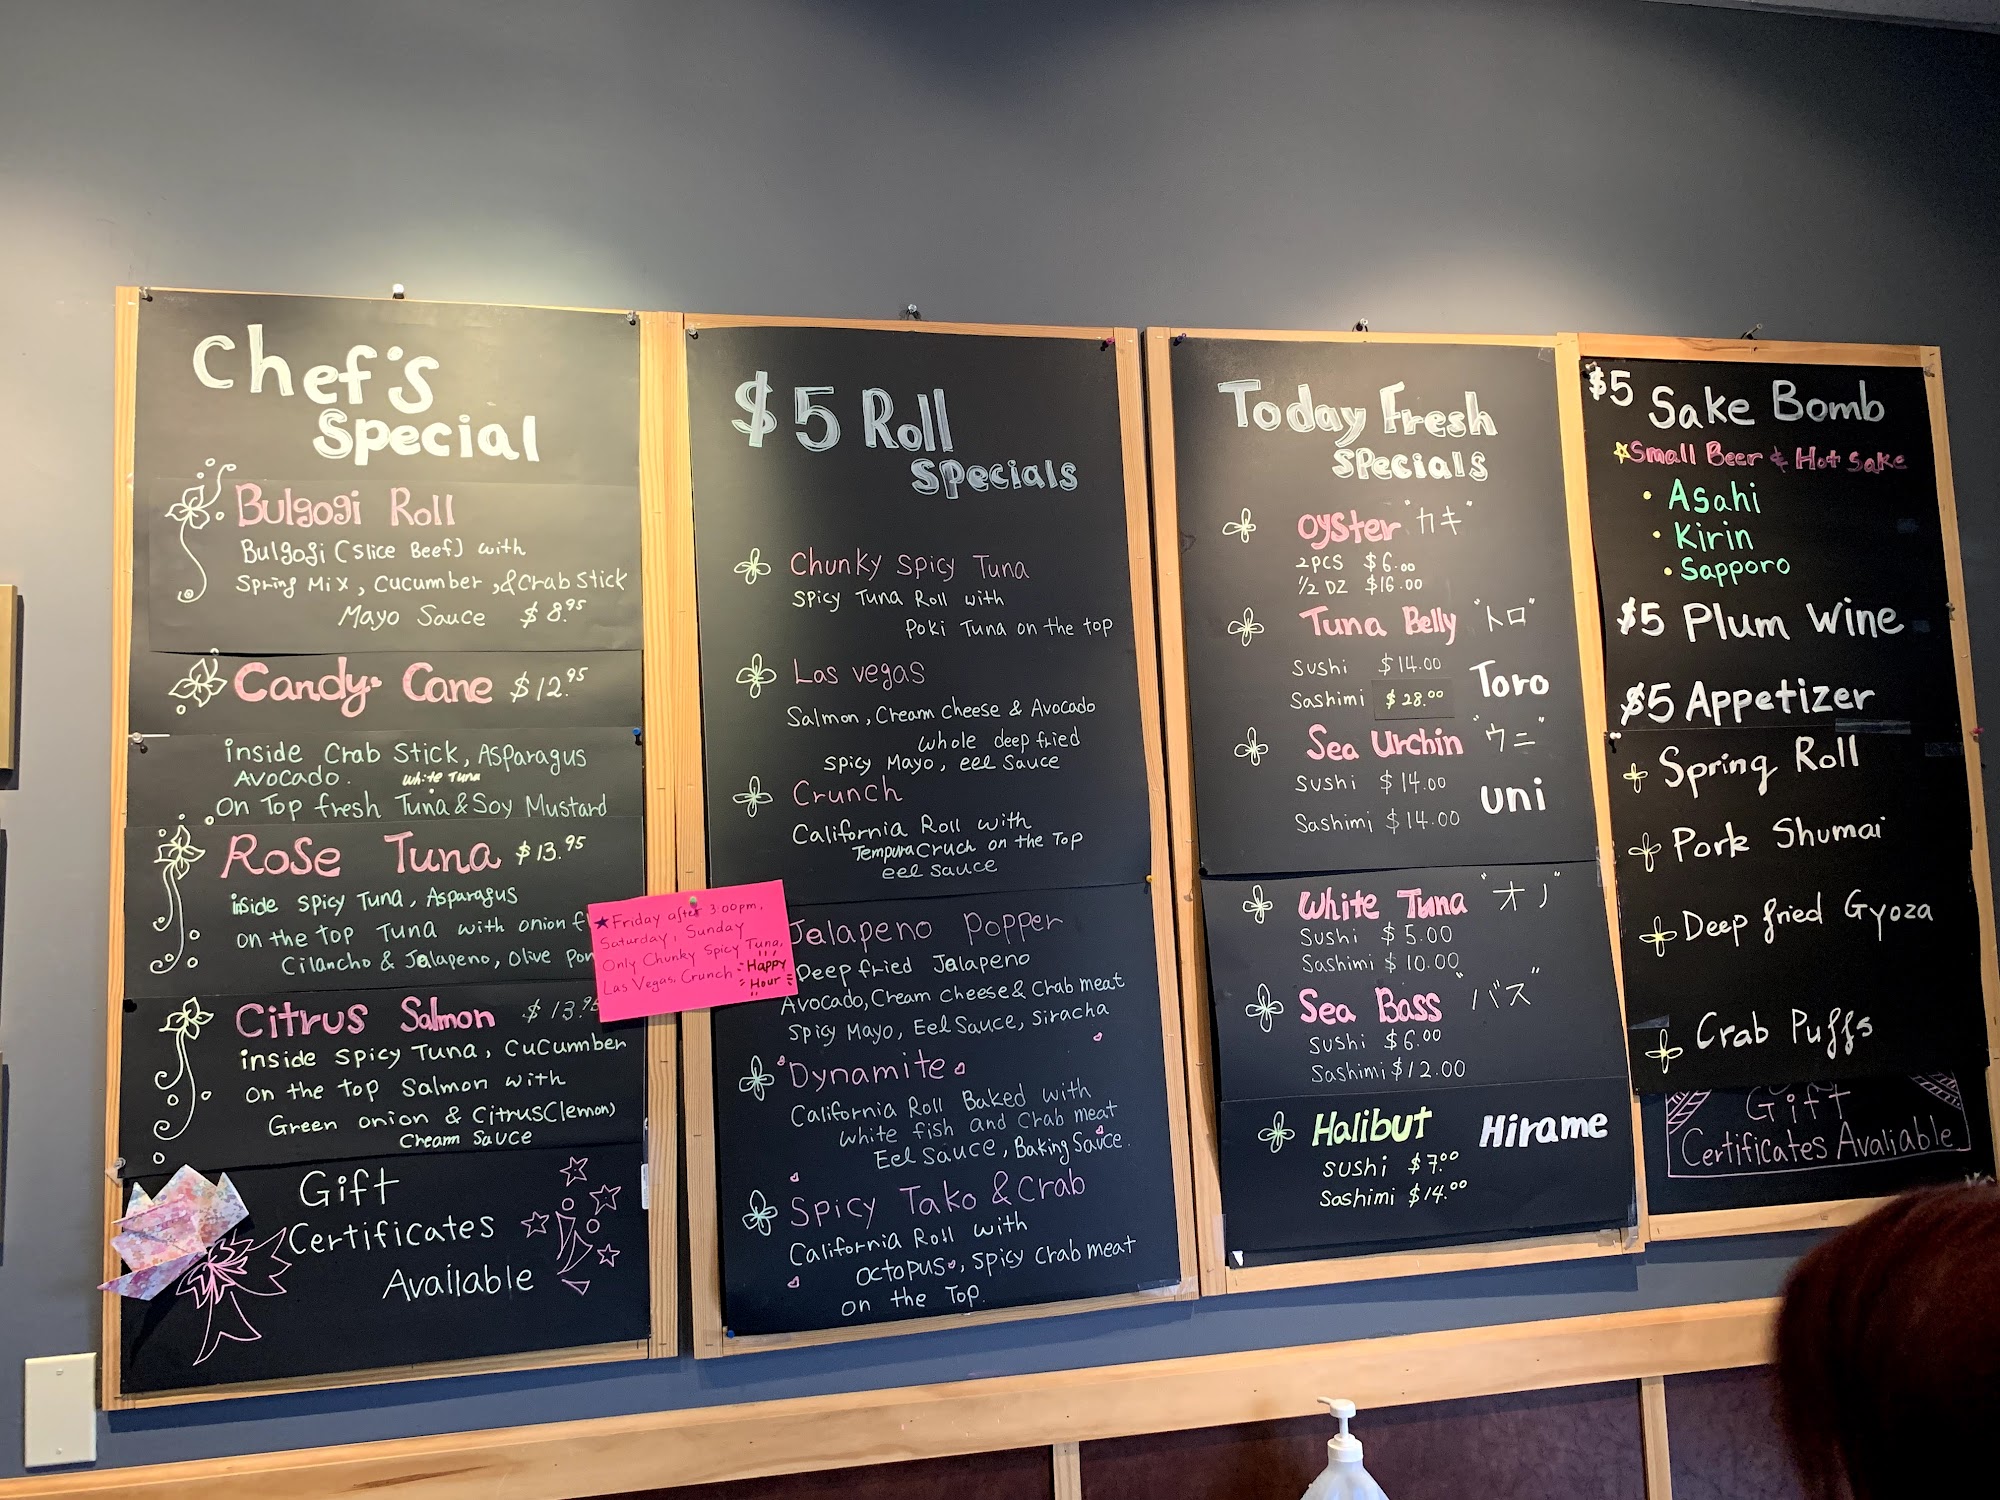 Chef's
Special
Bulgogi Roll
Bulgogi (Slice Beef) with
Spring Mix, Cucumber, & Crab Stick
Mayo Sauce $8.95
Candy Cane $12.95
inside Crab Stick, Asparagus
Avocado.
White Tuna
On Top fresh Tuna & Soy Mustard
Rose Tuna $13.95
inside spicy Tuna, Asparagus
on the top Tuna with onion
Cilancho & Jalapeno, Olive
Citrus Salmon $13.95
inside spicy Tuna, Cucumber
on the top Salmon with
Green onion & Citrus(lemon)
Cream Sauce
Gift
Certificates
Available
★Friday after 3:00pm,
Saturday, Sunday
Only Chunky Spicy Tuna,
Las Vegas, Crunch Happy
Hour
$5 Roll
Specials
Chunky Spicy Tuna
Spicy Tuna Roll with
Poki Tuna on the top
Las vegas
Salmon, Cream Cheese & Avocado
whole deep fried
spicy Mayo, eel sauce
Crunch
California Roll with
Tempura Cruch on the Top
eel sauce
Jalapeno Popper
Deep fried Jalapeno
Avocado, Cream cheese & Crab meat
Spicy Mayo, Eel Sauce, Siracha
Dynamite
California Roll Baked with
white fish and Crab meat
Eel Sauce, Baking Sauce.
Spicy Tako & Crab
California Roll with
octopus, spicy Crab meat
on the Top.
Today Fresh
Specials
Oyster "カキ"
2PCS $6.00
1/2 DZ $16.00
Tuna Belly "トロ"
Sushi $14.00
Toro
Sashimi $28.00
Sea Urchin "ウニ"
Sushi $14.00
uni
Sashimi $14.00
White Tuna "オノ"
Sushi $5.00
Sashimi $10.00
Sea Bass "バス"
Sushi $6.00
Sashimi $12.00
Halibut Hirame
Sushi $7.00
Sashimi $14.00
$5 Sake Bomb
☆Small Beer & Hot Sake
• Asahi
• Kirin
• Sapporo
$5 Plum Wine
$5 Appetizer
Spring Roll
Pork Shumai
Deep fried Gyoza
Crab Puffs
Gift
Certificates Avaliable